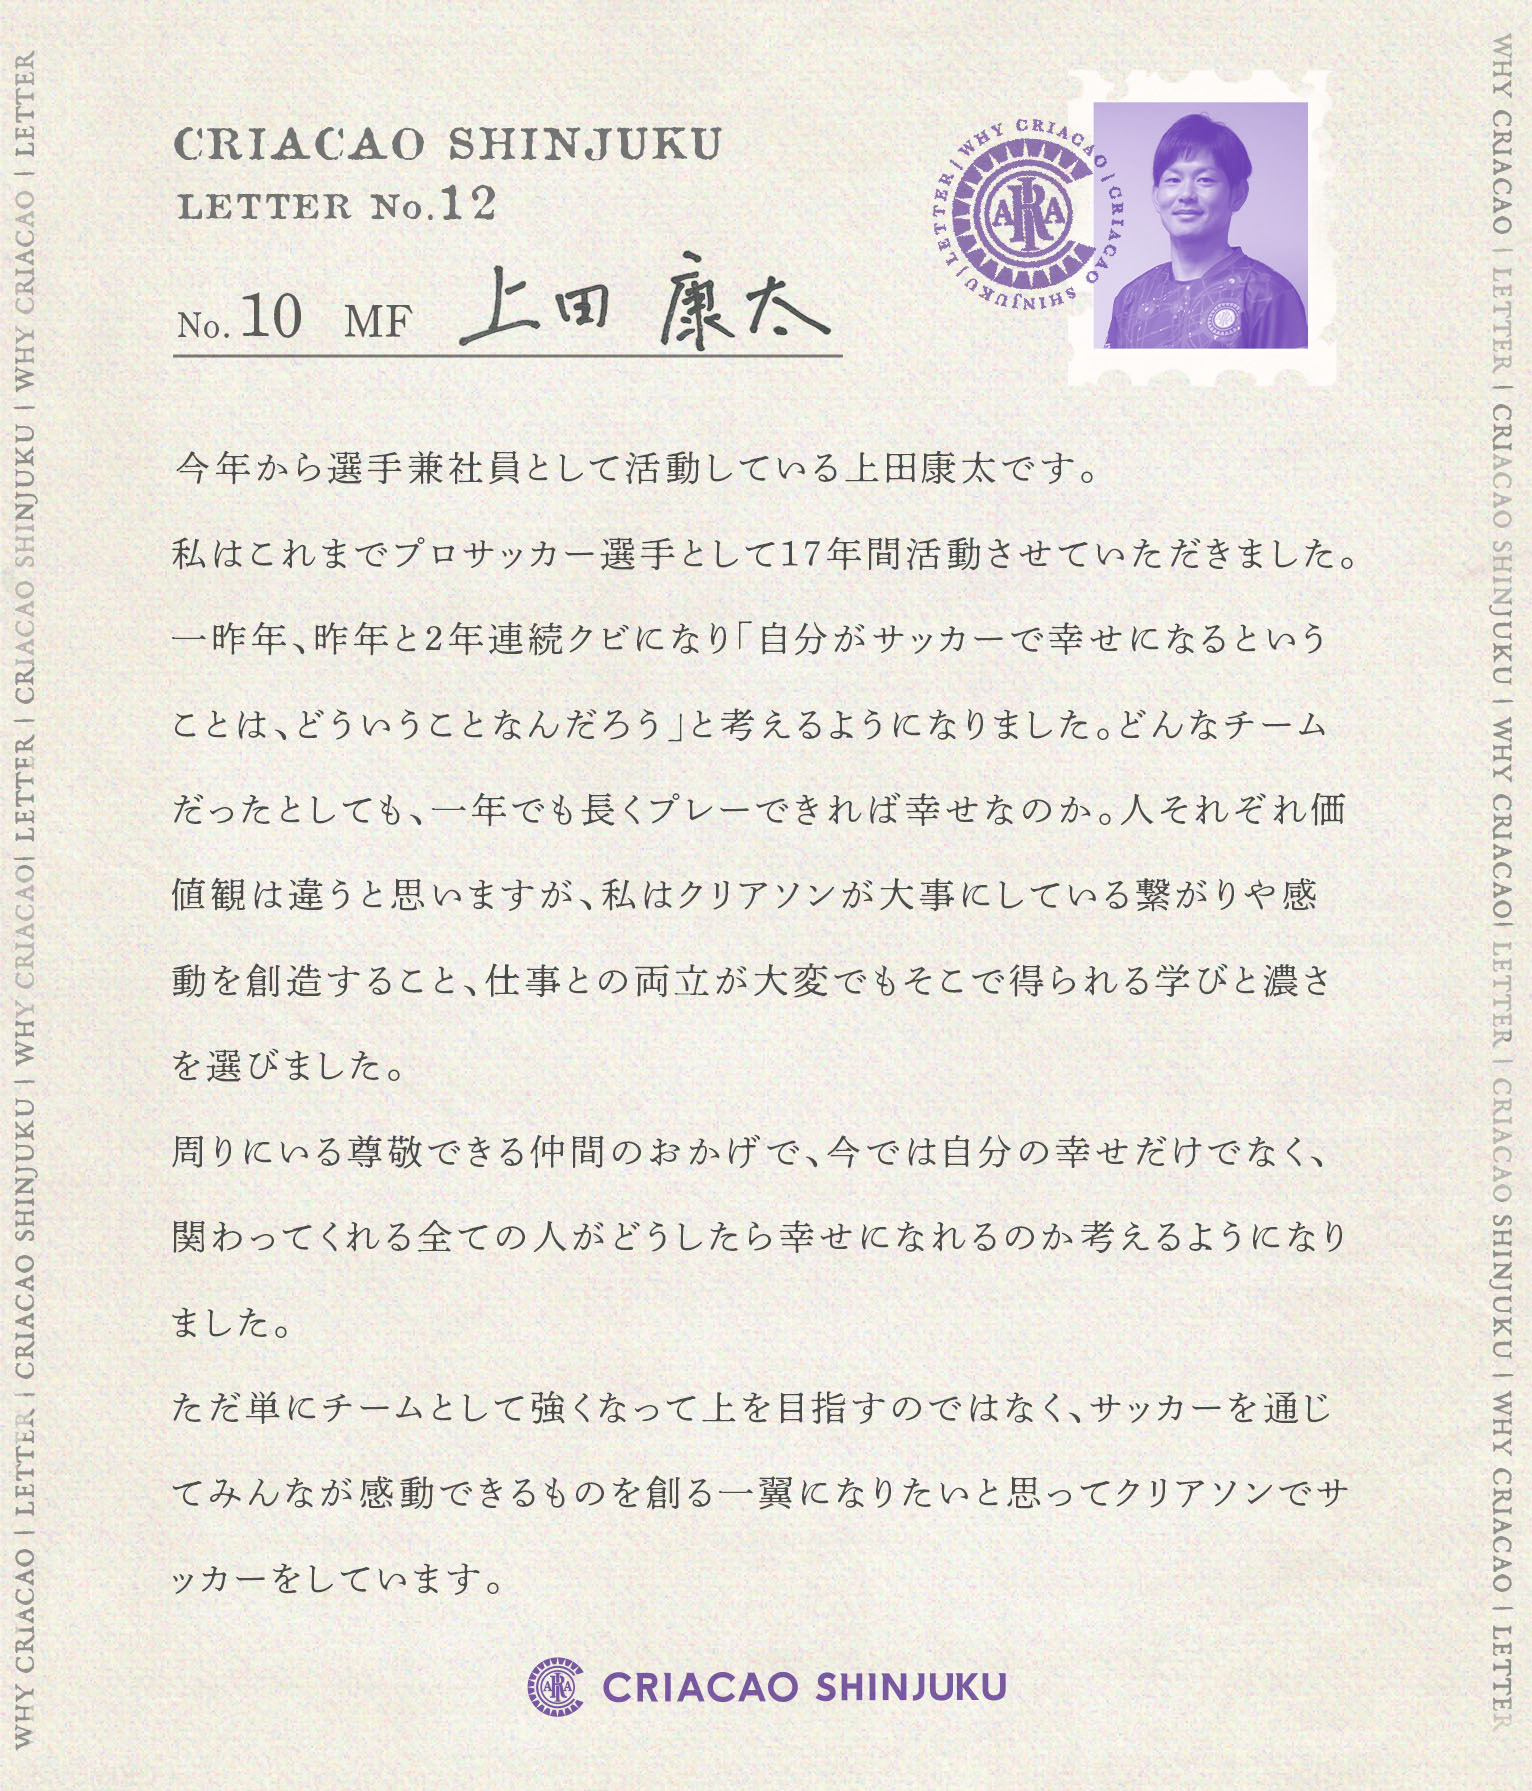 CRIACAO SHINJUKU
LETTER No.12
No. 10 MF 上田 康太
WHY CRIACAO | CRIACAO SHINJUKU | LETTER |
今年から選手兼社員として活動している上田康太です。
私はこれまでプロサッカー選手として17年間活動させていただきました。
一昨年、昨年と2年連続クビになり「自分がサッカーで幸せになるという
ことは、どういうことなんだろう」と考えるようになりました。どんなチーム
だったとしても、一年でも長くプレーできれば幸せなのか。人それぞれ価
値観は違うと思いますが、私はクリアソンが大事にしている繋がりや感
動を創造すること、仕事との両立が大変でもそこで得られる学びと濃さ
を選びました。
周りにいる尊敬できる仲間のおかげで、今では自分の幸せだけでなく、
関わってくれる全ての人がどうしたら幸せになれるのか考えるようになり
ました。
ただ単にチームとして強くなって上を目指すのではなく、サッカーを通じ
てみんなが感動できるものを創る一翼になりたいと思ってクリアソンでサ
ッカーをしています。
CRIACAO SHINJUKU
WHY CRIACAO | LETTER | CRIACAO SHINJUKU | WHY CRIACAO | LETTER | CRIACAO SHINJUKU | WHY CRIACAO | LETTER
WHY CRIACAO | LETTER | CRIACAO SHINJUKU | WHY CRIACAO | LETTER | CRIACAO SHINJUKU | WHY CRIACAO | LETTER